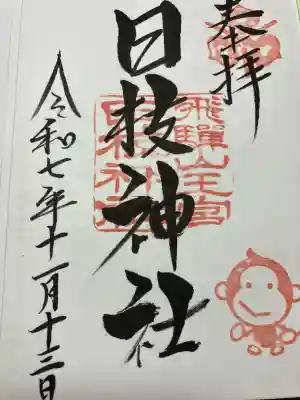 奉拝
飛騨山王宮
日枝神社
日枝神社
令和七年十一月十三日